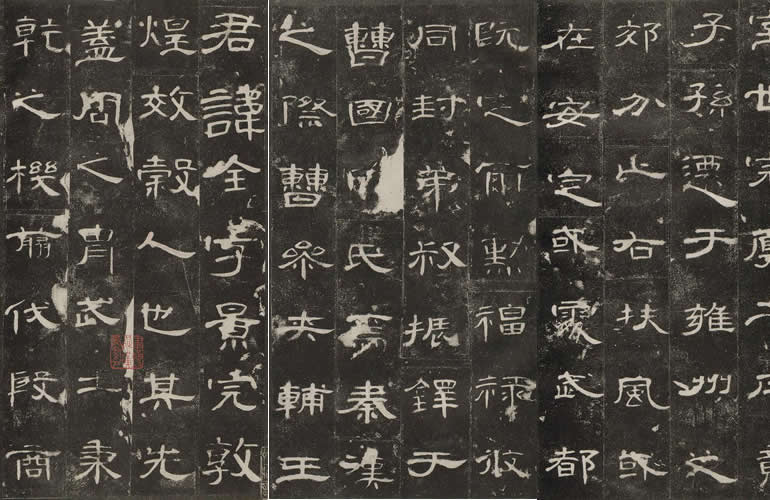 君諱全字景完敦
煌效穀人也其先
蓋周之胄武王秉
乾之機翦伐殷商
既定爾勳福祿攸
同封弟叔振鐸于
曹國因氏焉秦漢
之際曹參夾輔王
室世宗廓土斥竟
子孫遷于雍州之
郊分止右扶風或
在安定或處武都